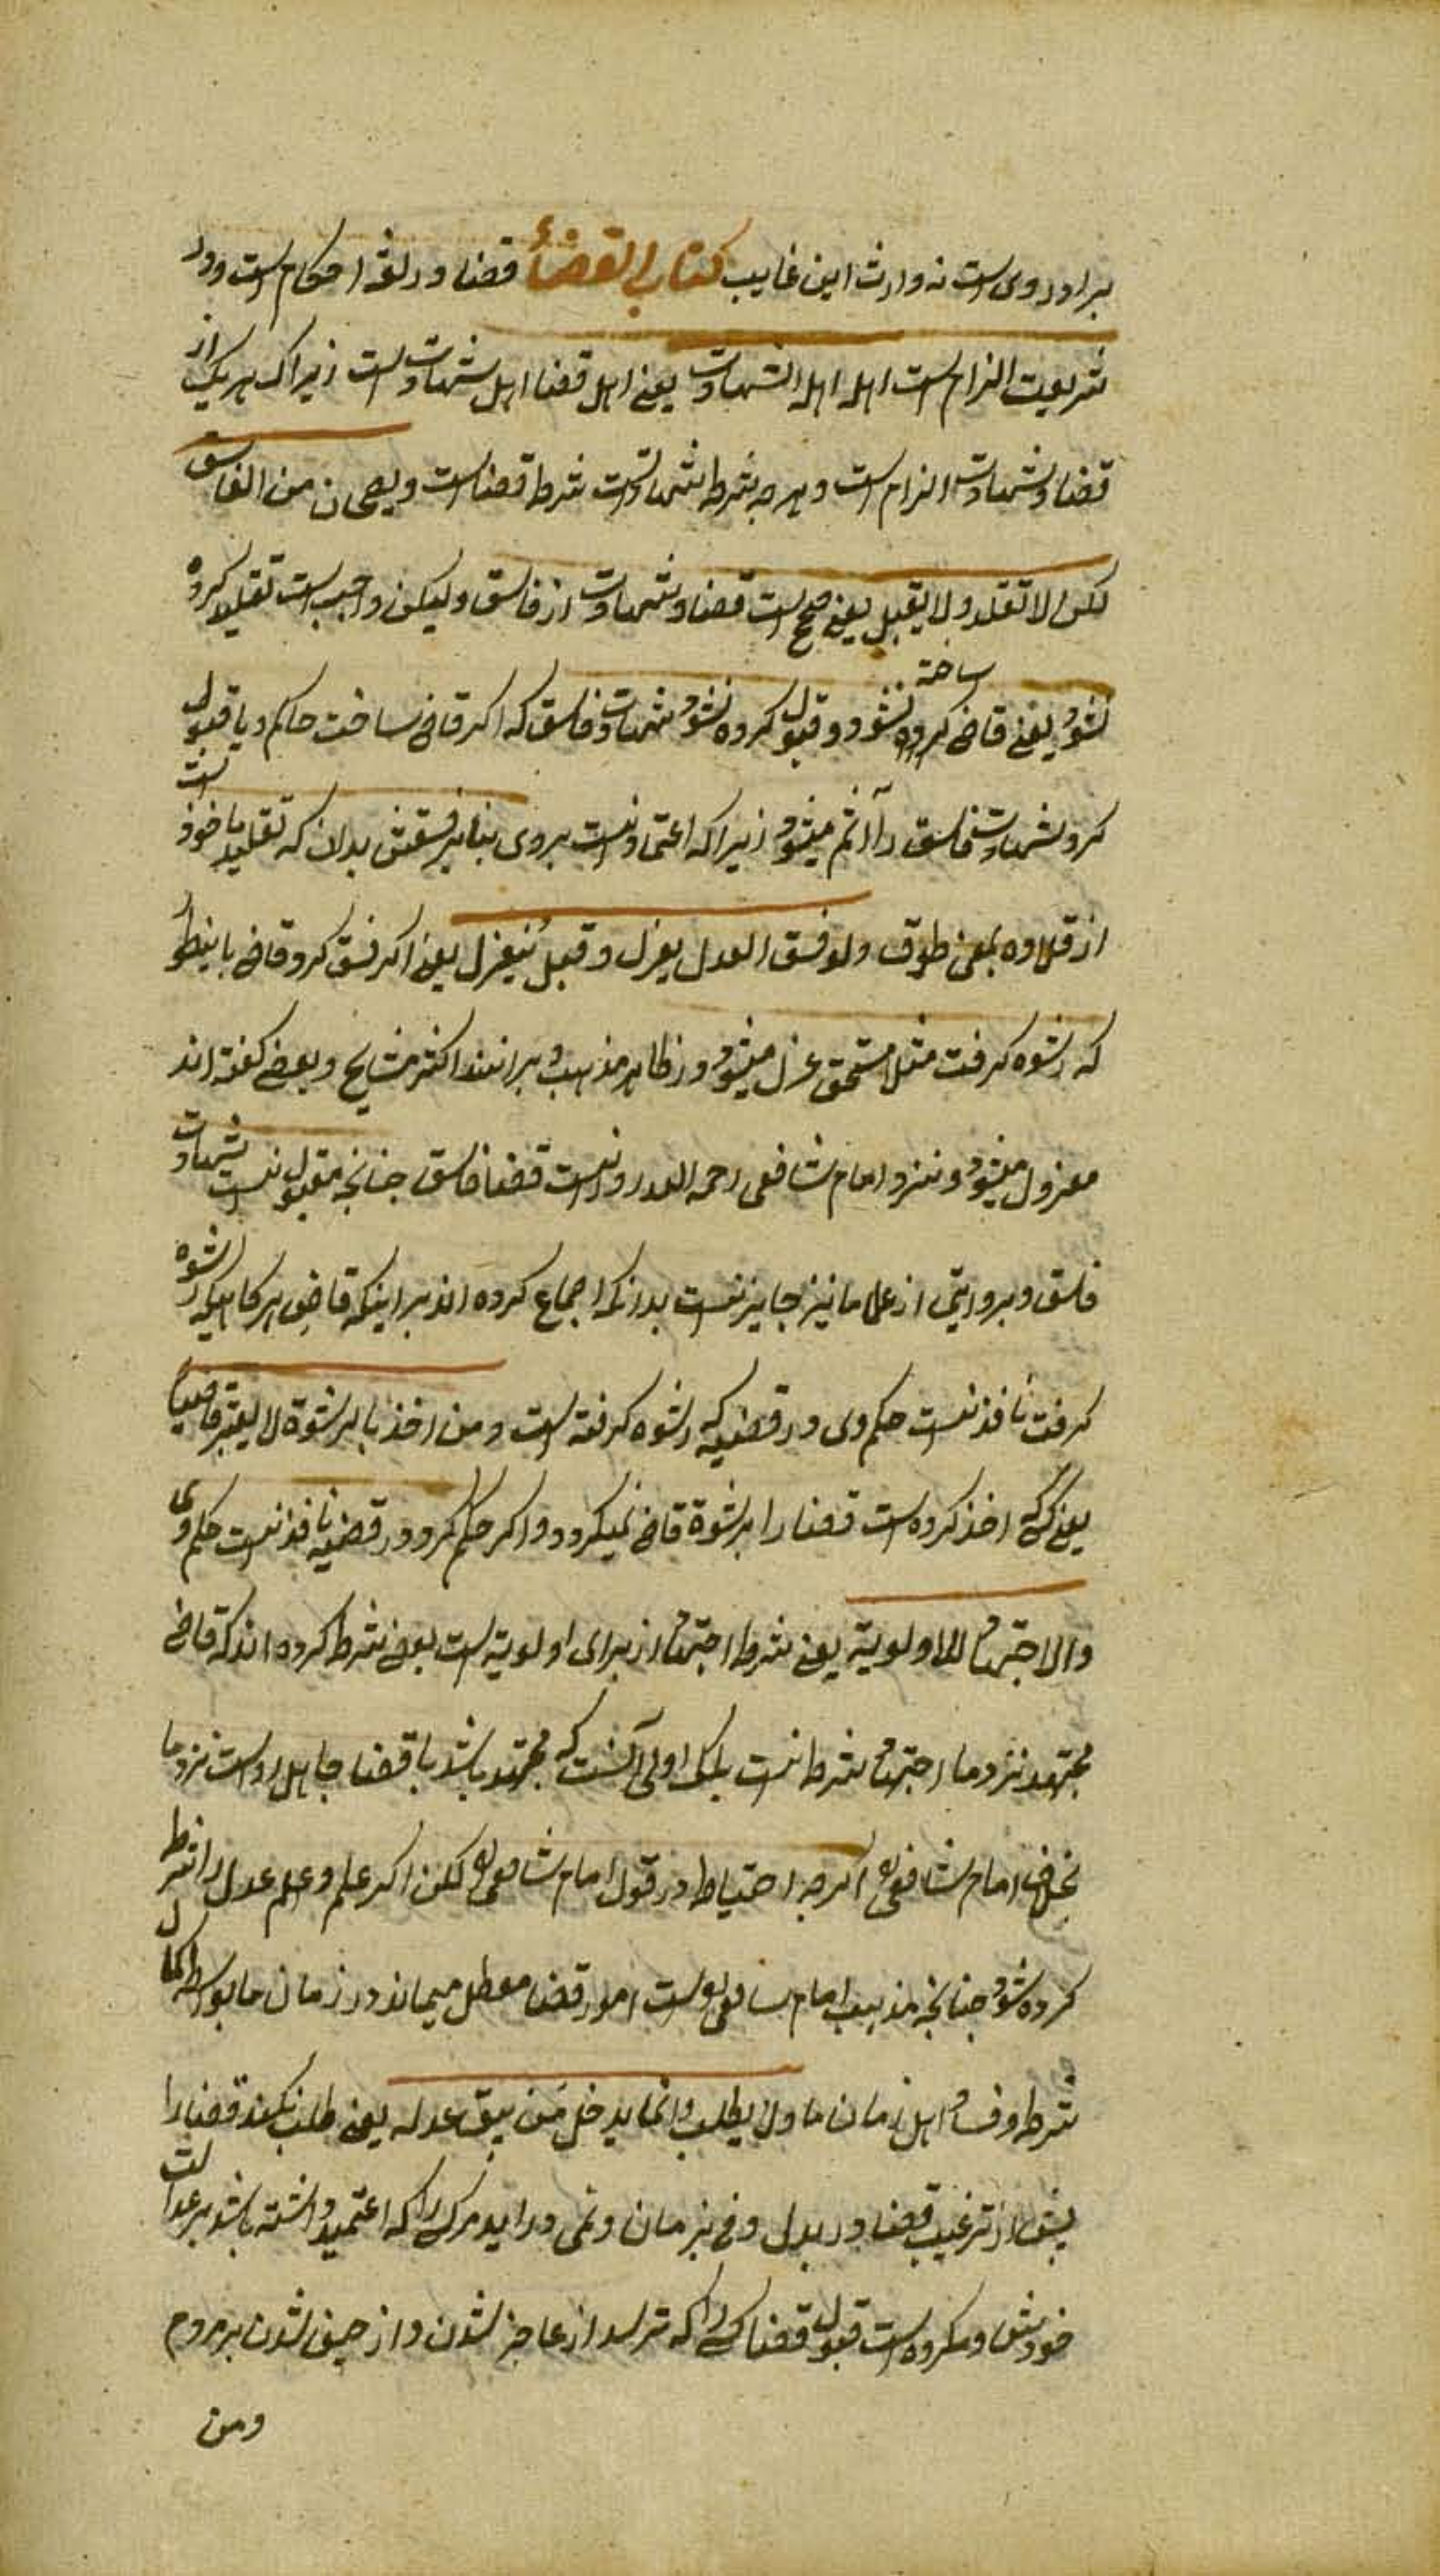 برادر وی است نه وارث این غایب کتاب القضاء قضا در لغة احکام است و در
شریعت الزام است اهله اهل الشهادت یعنی اهل قضا اهل شهادت است زیراکه هر یک از
قضا و شهادت الزام است و هرچه شرط شهادتست شرط قضا است و یصحان من الفاسق
لکن لا تقلد و لا یقبل یعنی صحیح است قضا و شهادت از فاسق ولیکن واجب است تقلید کرده
نشود یعنی قاضی کرده ساخته نشود و قبول کرده نشود شهادت فاسق که اکر قاضی ساخت حاکم و یا قبول
کرد شهادت فاسق را آثم میشود زیراکه اعتماد نیست بروی بنابر فسقش بدان که تقلید ماخوذ است
از قلاده بمعنی طوق ولو فسق العدل یعزل و قیل ینعزل یعنی اکر فسق کرد قاضی باینطور
که رشوه کرفت مثلا مستحق عزل میشود در ظاهر مذهب و برانند اکثر مشایخ و بعضی کفته اند
معزول میشود و نزد امام شافعی رحمه الله روا نیست قضا فاسق چنانچه مقبول نیست شهادت
فاسق و بروایتی از علما ما نیز جایز نیست بدانکه اجماع کرده اند بر اینکه قاضی هرکاهیکه رشوه
کرفت نافذ نیست حکم وی در قضیه که رشوه کرفته است و من اخذ بالرشوة لا یعتبر قاضیا
یعنی کسی که اخذ کرده است قضا را برشوة قاضی نمیکردد و اکر حکم کرد در قضیه نافذ نیست حکم وی
والاجتهاد للاولویة یعنی شرط اجتهاد از برای اولویة است بعضی شرط کرده اند که قاضی
مجتهد نزد ما اجتهاد شرط نیست بلکه اولی آنست که مجتهد باشد با قضا جاهل رواست نزد ما
بخلاف امام شافعی اکرچه احتیاط در قول امام شافعی لکن اکر علم و عدل را شرط
کرده شود چنانچه مذهب امام شافعی است امور قضا معطل میماند در زمان ما بواسطه کمال
شرط و فساد اهل زمان ما ولا یطلب و انما یدخل من یثق عدله یعنی طلب نکند قضا را
پیش از ترغیب قضا در بدل و فی زمان و نمی دراید مرکسی را که اعتمید داشته باشد بر عدالت
خودش و مکروه است قبول قضا کسی را که ترسد از عاجز شدن و از حیف شدن بر مردم
ومن